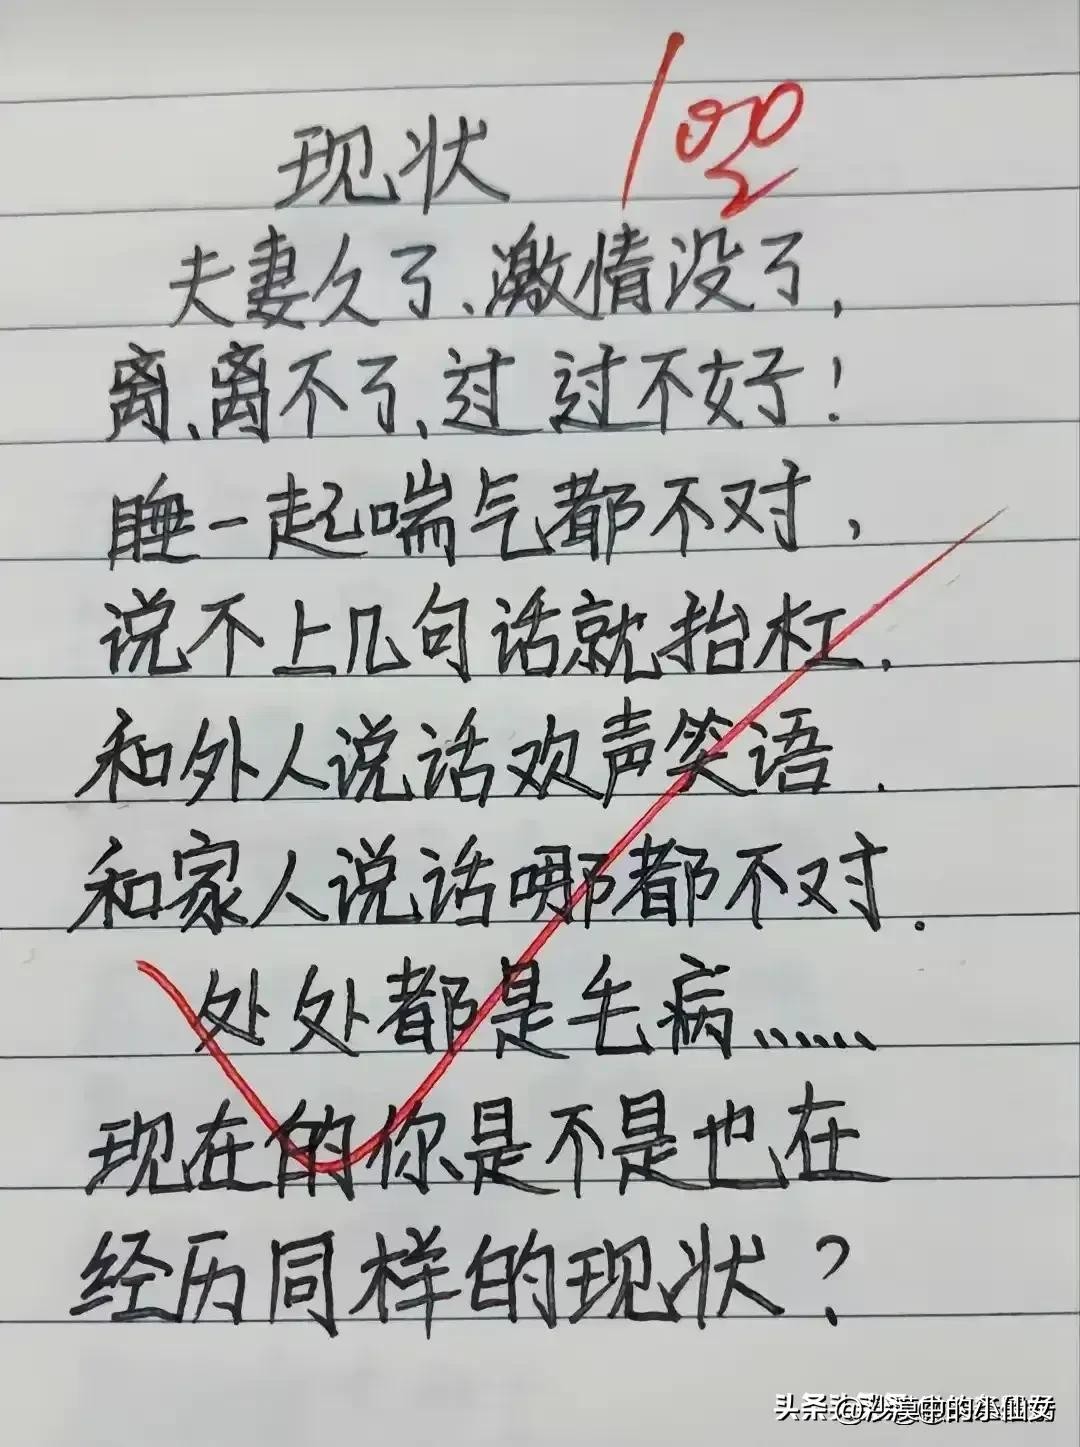 现状
100
夫妻久了、激情没了,
离、离不了、过 过不好!
睡一起喘气都不对,
说不上几句话就抬杠.
和外人说话欢声笑语.
和家人说话哪都不对.
处处都是毛病......
现在的你是不是也在
经历同样的现状?
@沙漠中的小仙女